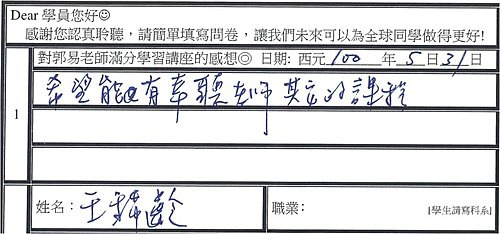 Dear 學員您好☺
感謝您認真聆聽，請簡單填寫問卷，讓我們未來可以為全球同學做得更好!
1
對郭易老師滿分學習講座的感想◎ 日期: 西元 100 年 5 日 31 日
希望能有幸聽老師其它的課程
姓名：王 齡
職業： [學生請寫科系]